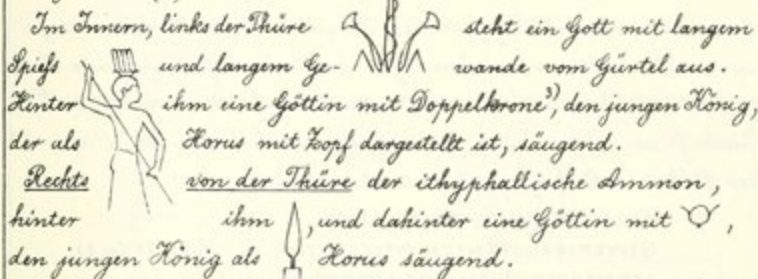 Im Innern, links der Thüre steht ein Gott mit langem
Spieß und langem Ge- wande vom Gürtel aus.
Hinter ihm eine Göttin mit Doppelkrone³⁾, den jungen König,
der als Horus mit Zopf dargestellt ist, säugend.
Rechts von der Thüre der ithyphallische Ammon,
hinter ihm , und dahinter eine Göttin mit ,
den jungen König als Horus säugend.